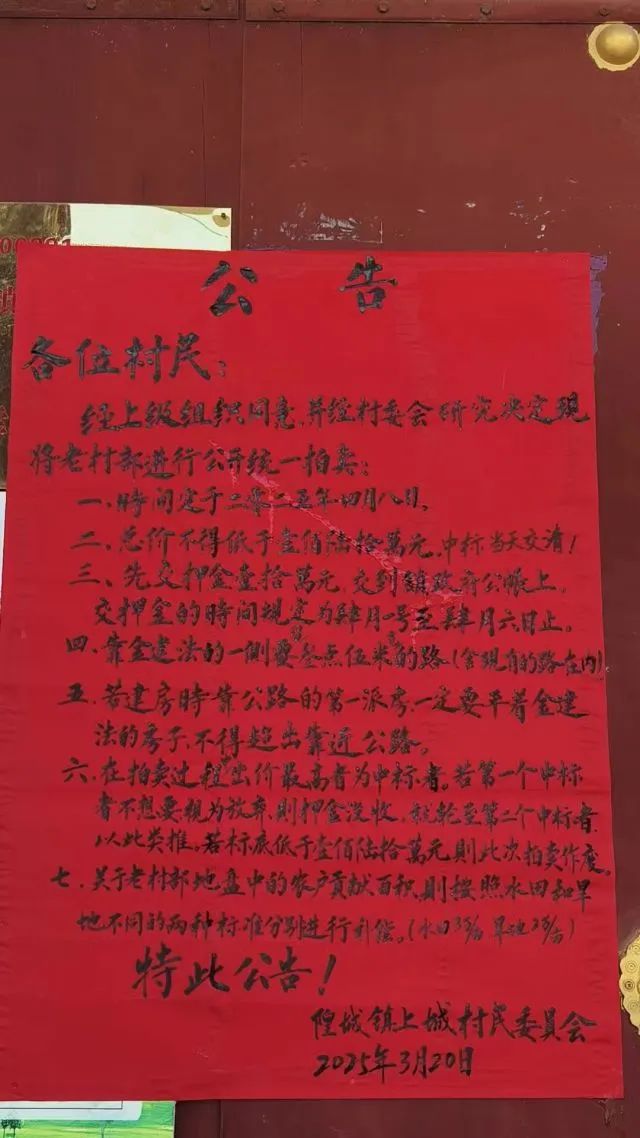 公告
各位村民:
经上级组织同意,并经村委会研究决定现
将老村部进行公开统一拍卖:
一、時间定于二零二五年四月八日。
二、总价不得低于壹佰陆拾萬元,中标当天交清!
三、先交押金壹拾萬元,交到镇政府公帐上,
交押金的時间规定为肆月一号至肆月六日止。
四、靠金建法的一側要叁点伍米的路(含現有的路在内)
五、若建房時靠公路的第一派房,一定要平着金建
法的房子,不得超出靠近公路。
六、在拍卖过程出价最高者为中标者。若第一个中标
者不想要視为放弃,则押金没收,就轮至第二个中标者,
以此类推。若标底低于壹佰陆拾萬元则此次拍卖作废。
七、关于老村部地盘中的农户贡献面积,则按照水田和旱
地不同的两种标准分别进行补偿。(水田 旱地)
特此公告!
隍城镇上城村民委員会
2025年3月20日